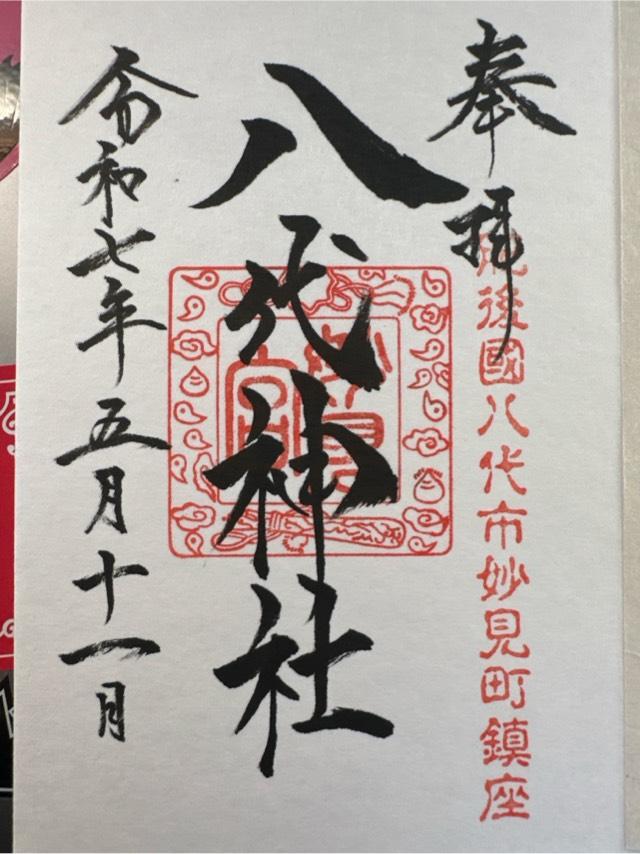 奉拝
肥後國八代市妙見町鎮座
八代神社
妙見
宮
令和七年五月十一日